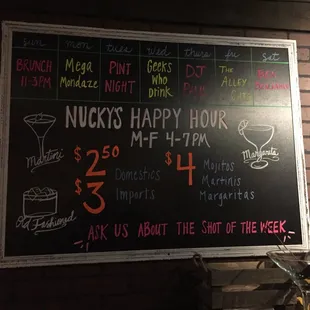 Sun Mon Tues Wed Thurs Fri Sat
BRUNCH 11-3PM
Mega Mondaze
PINT NIGHT
Geeks Who Drink
DJ
The Alley Cats
NUCKY'S HAPPY HOUR
M-F 4-7PM
Martini
Margarita
$2.50 Domestics
$3 Imports
$4 Mojitos
Martinis
Margaritas
Old Fashioned
ASK US ABOUT THE SHOT OF THE WEEK